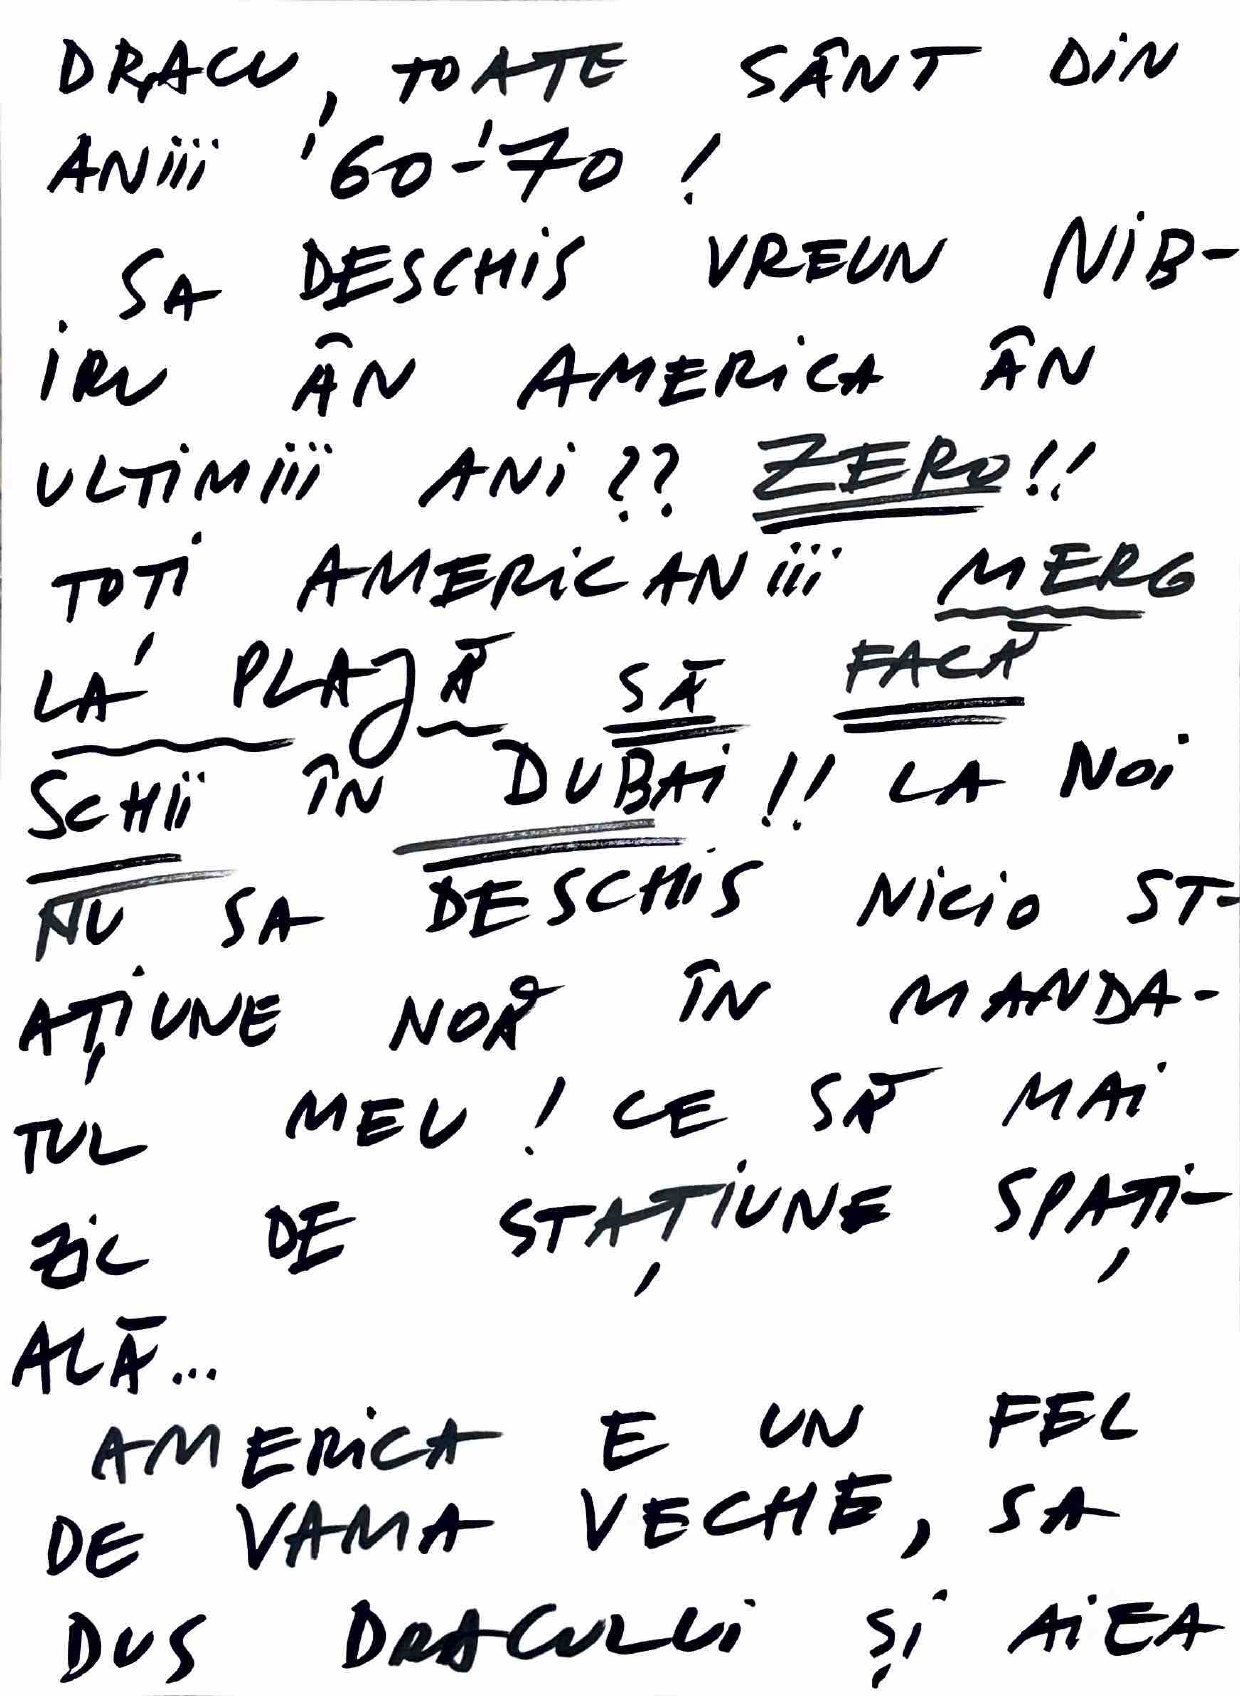 DRACU, TOATE SÂNT DIN
ANIII '60-'70!
SA DESCHIS VREUN NIB-
IRU ÂN AMERICA ÂN
ULTIMIII ANI?? ZERO!!
TOTI AMERICANIII MERG
LA PLAJĂ SĂ FACĂ
SCHII ÎN DUBAI!! LA NOI
NU SA DESCHIS NICIO ST-
AȚIUNE NOĂ ÎN MANDA-
TUL MEU! CE SĂ MAI
ZIC DE STAȚIUNE SPAȚI-
ALĂ...
AMERICA E UN FEL
DE VAMA VECHE, SA
DUS DRACULUI ȘI AIEA